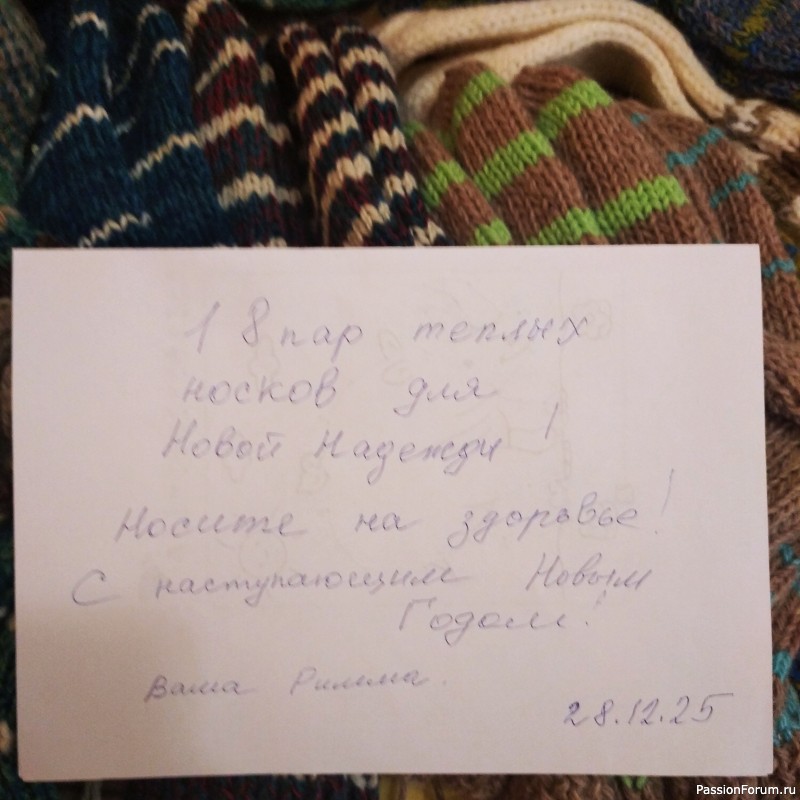 18 пар теплых
носков для
Новой Надежды!
Носите на здоровье!
С наступающим Новым
Годом!
Ваша Римма.
28.12.25
PassionForum.ru